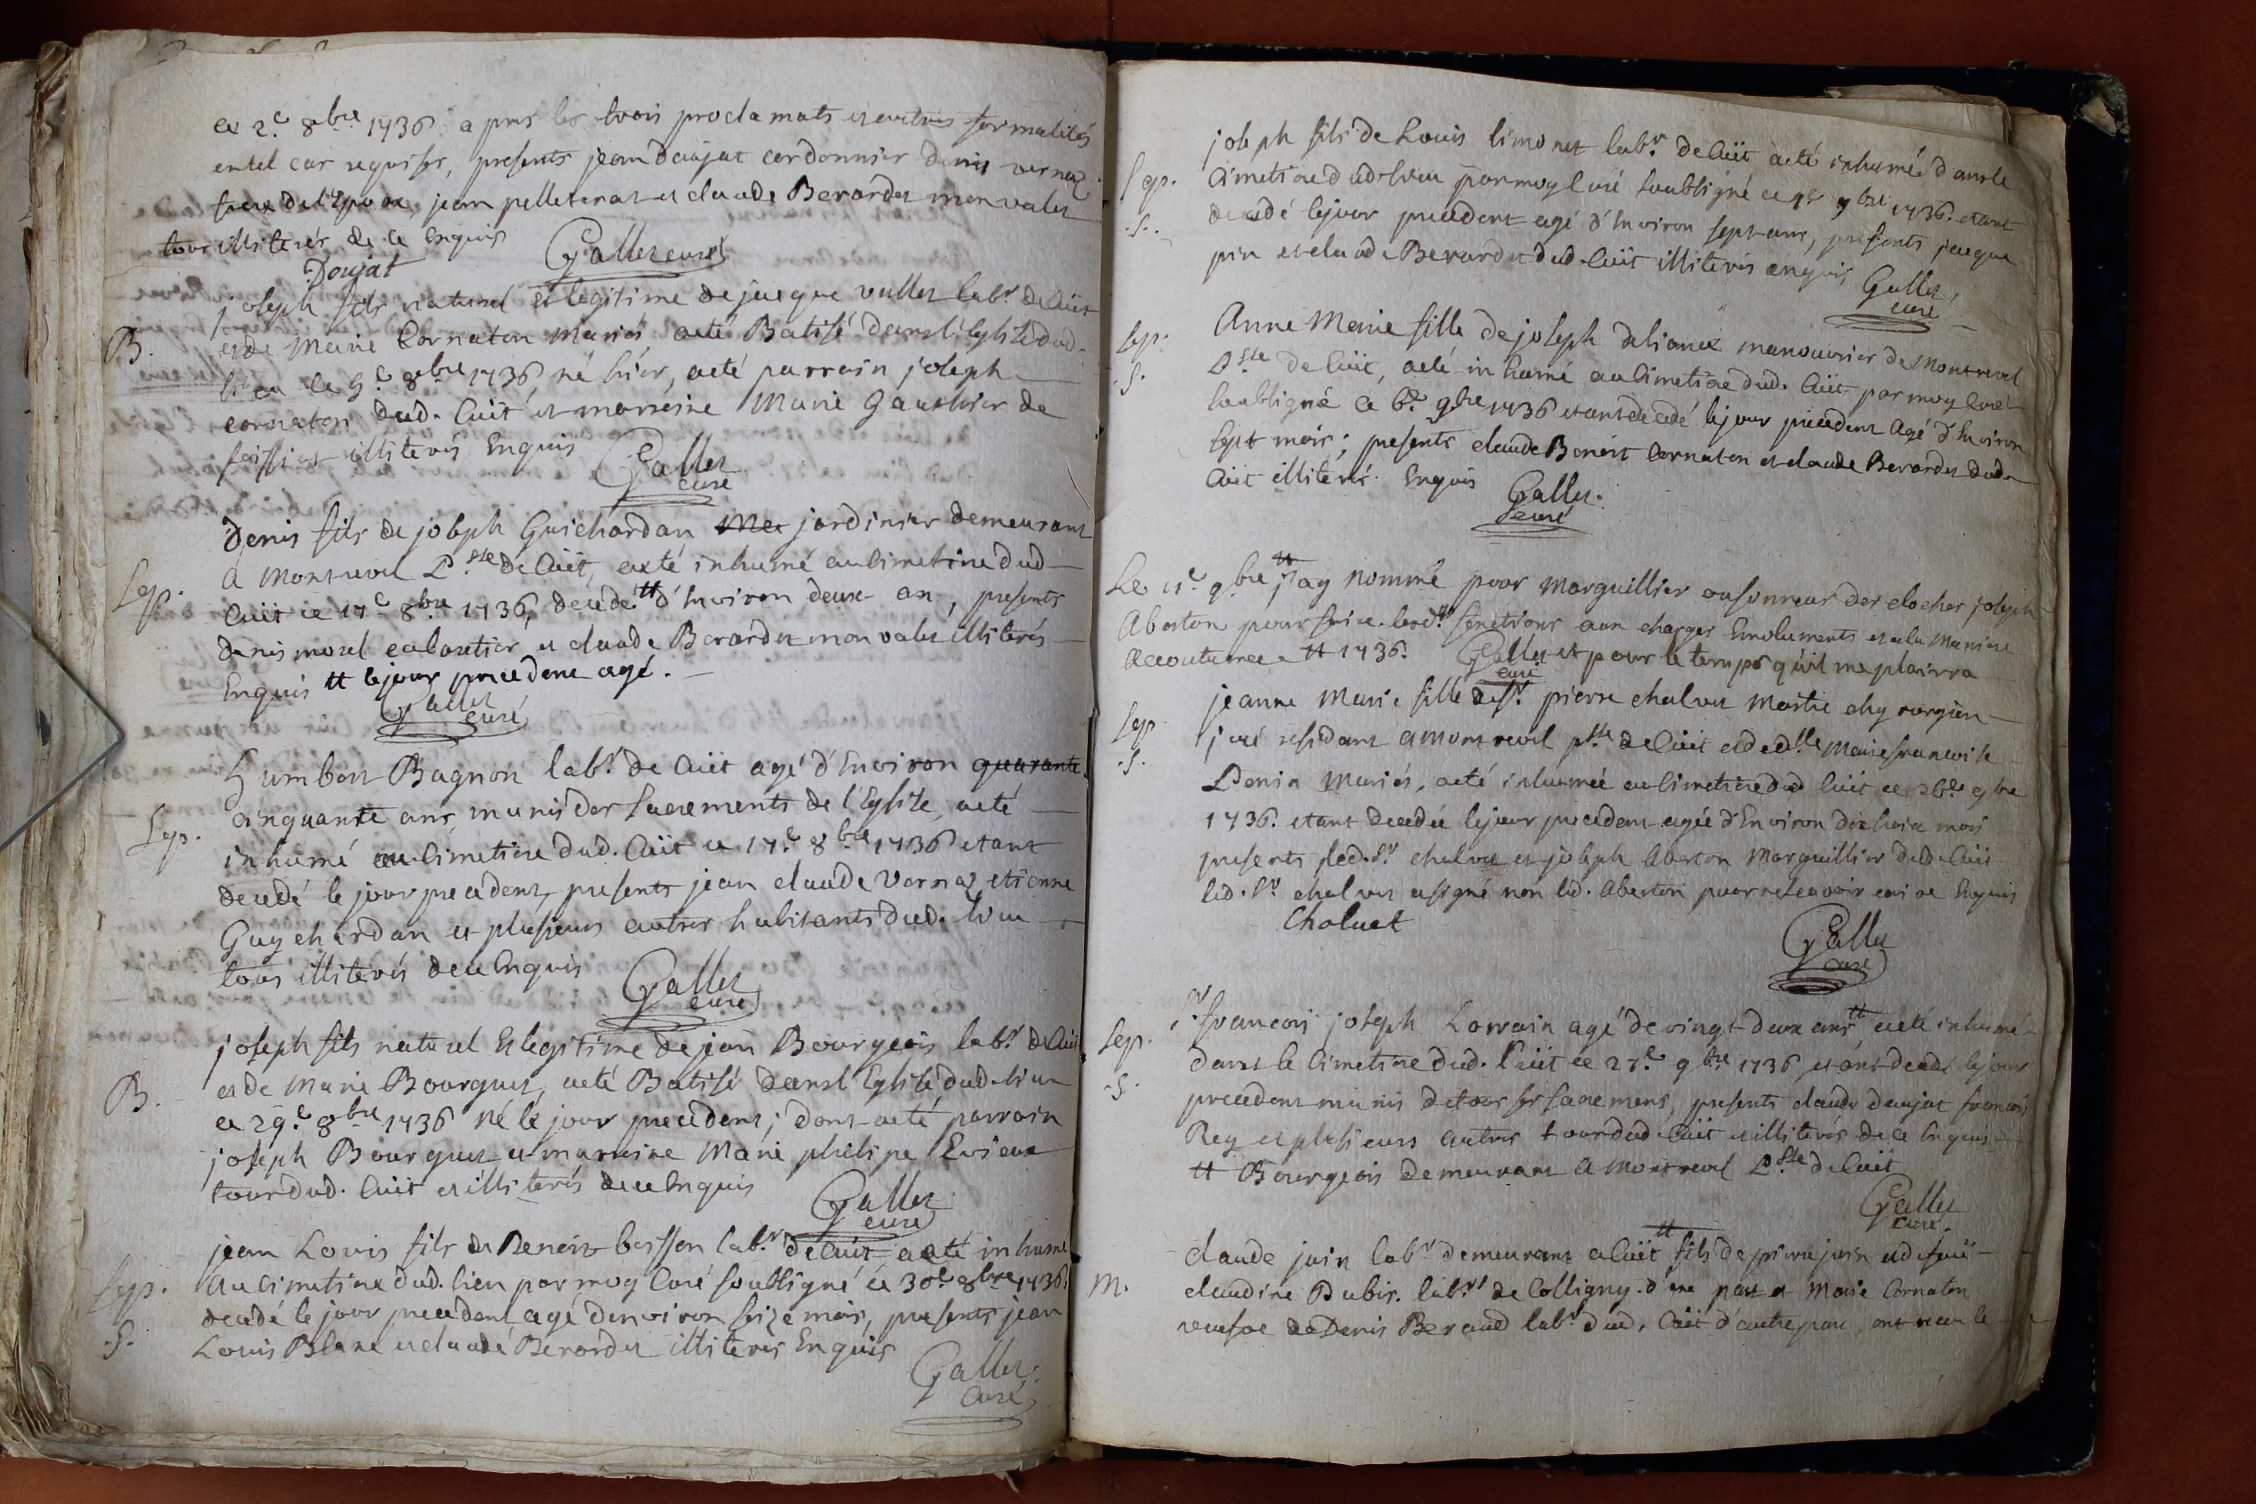 ce 2.e 8bre 1736 apres les trois proclamats et autres formalités
entel cas requises, presents jean daujat cordonnier denis vernaz
frere de l'Epoux, jean pelleterat et claude Berardet mon valet
tous illiterés de ce Enquis Gallet curé
Doujat
joseph fils naturel et legitime de jacque vullet labr. de Cuit
B. et de Marie Cornaton Mariés aeté Batisé dansl'Eglise dud.
lieu ce 9.e 8bre 1736 né hier, aeté parrain joseph
cornaton dud. Cuit et marreine Marie Gauthier de
foissiat illiterés Enquis Gallet
curé
Denis fils de joseph Guichardan jardinier demeurant
Sep. a Montrevel P.sse de Cuit, aeté inhumé au Cimetiere dud.
Cuit ce 17e 8bre 1736, decedé tt d'Environ deux an, presents
denis morel cabaretier et claude Berardet mon valet illiterés
Enquis tt le jour precedent agé.
Gallet
curé
Humbert Bagnon labr. de Cuit agé d'Environ quarante
Sep. cinquante ans, munis des Sacrements de l'Eglise, aeté
inhumé au Cimetiere dud. Cuit ce 17.e 8bre 1736 etant
decedé le jour precedent, presents jean claude Vernaz etienne
Guychardan et plusieurs autres habitants dud. lieu
tous illiterés de ce Enquis Gallet
curé
joseph fils naturel et legitime de jean Bourgeois labr. de Cuit
B. et de Marie Bourguet, aeté Batisé dansl'Eglise dud. lieu
ce 29.e 8bre 1736 né le jour precedent; dont aeté parrain
joseph Bourguet et marreine Marie philipe Evieux
tous dud. Cuit et illiterés de ce Enquis Gallet
curé
jean Louis fils de Benoit besson labr. de Cuit aeté inhumé
Sep. au Cimetiere dud. lieu par moy Curé soussigné ce 30e 8bre 1736
decedé le jour precedent agé denviron seize mois, presents jean
.S. Louis Blanc et claude Berardet illiterés Enquis
Gallet
Curé
joseph fils de Louis limonet labr. de Cuit aeté inhumé dans le
Sep. Cimetiere dud. lieu par moy Curé soussigné ce 9bre 1736. etant
.S. decedé le jour precedent agé d'Environ sept ans, presents jacque
pin et claude Berardet dud. Cuit illiterés enquis Gallet
curé
Sep. Anne Marie fille de joseph manouvrier de Montrevel
.S. P.sse de Cuit, aeté inhumé au Cimetiere dud. Cuit par moy Curé
soussigné ce 6.e 9bre 1736 etant decedé le jour precedent agé d'Environ
sept mois; presents claude Benoit Cornaton et claude Berardet dud.
Cuit illiterés. Enquis Gallet
curé
Le 11e 9bre tt j'ay nommé pour Marguillier ou sonneur des cloches joseph
Aberton pour faire lesd. fonctions aux charges Emoluments et ala Maniere
Accoutumée tt 1736. Gallet et pour le temps qu'il me plairra
curé
Sep. jeanne Marie fille de Sr. pierre chalvet Maitre chyrurgien
.S. juré residant a Montrevel psse de Cuit et de dlle Marie francoise
Mariés, aeté inhumée au Cimetiere dud. Cuit ce 26e 9bre
1736. etant decedée le jour precedent agée d'Environ dix huit mois
presents led. Sr. chalvet et joseph Aberton Marguillier dud. Cuit
led. Sr chalvet a signé non led. Aberton pour ne scavoir Enquis
Chaluet Gallet
curé
Sep. Sr. francois joseph Lorrain agé de vingt deux ans tt aeté inhumé
.S. dans le Cimetiere dud. Cuit ce 27.e 9bre 1736, etant decedé le jour
precedent munis de tous ses sacremens, presents claude daujat francois
Rey et plusieurs autres tous dud. Cuit et illiterés de ce Enquis
tt Bourgeois demeurant a Montrevel P.sse de Cuit
Gallet
curé.
claude join labr demeurant a Cuit tt fils de pierre join et de fuë
M. claudine Dubis. labrs de Colligny d'une part et Marie Cornaton
veufve de Denis Beraud labr. dud. Cuit d'autre part, ont receu le